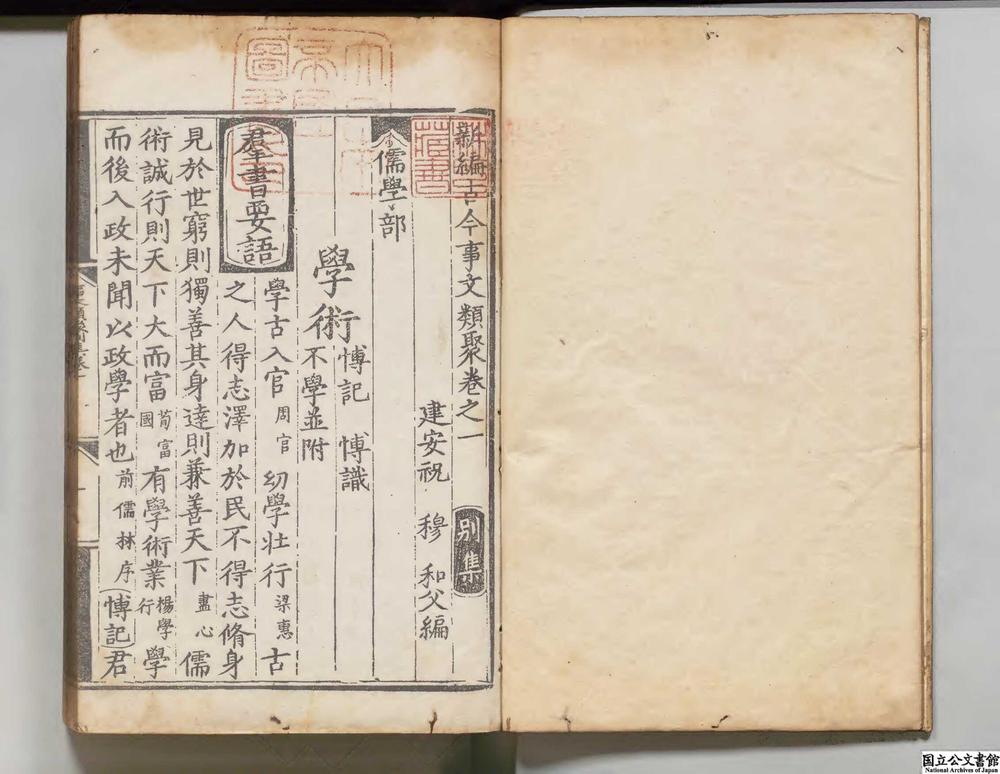 新編古今事文類聚卷之一 別集
建安祝 穆 和父編
儒學部
學術 愽記 愽識 不學並附
羣書要語 學古入官 周官 幼學壯行 梁惠 古
之人得志澤加於民不得志脩身
見於世窮則獨善其身達則兼善天下 盡心 儒
術誠行則天下大而富 荀富國 有學術業 楊學行 學
而後入政未聞以政學者也 前儒林序 愽記 君
藏書
国立公文書館
National Archives of Japan